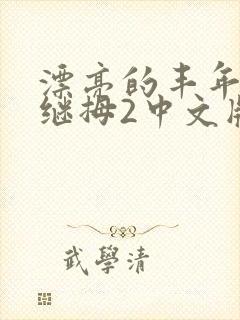 漂亮的丰年
继拇2中文版
武學清